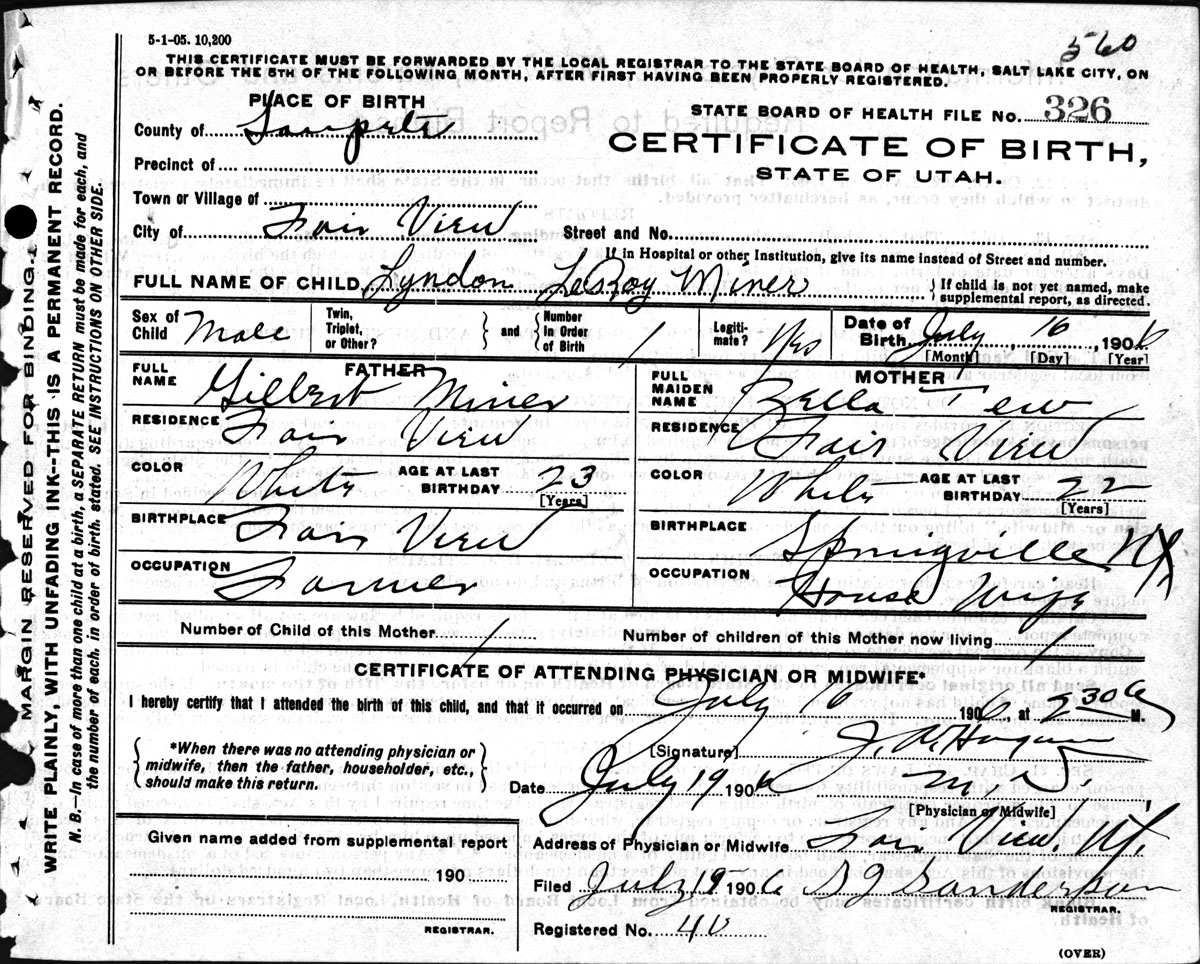 5-1-05. 10,200
560
THIS CERTIFICATE MUST BE FORWARDED BY THE LOCAL REGISTRAR TO THE STATE BOARD OF HEALTH, SALT LAKE CITY, ON
OR BEFORE THE 5TH OF THE FOLLOWING MONTH, AFTER FIRST HAVING BEEN PROPERLY REGISTERED.
PLACE OF BIRTH
STATE BOARD OF HEALTH FILE No. 326
County of Sanpete
CERTIFICATE OF BIRTH,
Precinct of
STATE OF UTAH.
Town or Village of
City of Fair View Street and No.
If in Hospital or other Institution, give its name instead of Street and number.
FULL NAME OF CHILD Lyndon LeRoy Miner { If child is not yet named, make supplemental report, as directed.
Sex of Child Male Twin, Triplet, or Other? } and { Number In Order of Birth 1 Legitimate? Yes Date of Birth July 16, 1906
[Month] [Day] [Year]
FATHER
FULL NAME Gilbert Miner
RESIDENCE Fair View
COLOR White AGE AT LAST BIRTHDAY 23
[Years]
BIRTHPLACE Fair View
OCCUPATION Farmer
MOTHER
FULL MAIDEN NAME Zella Tew
RESIDENCE Fair View
COLOR White AGE AT LAST BIRTHDAY 22
[Years]
BIRTHPLACE Springville Ut
OCCUPATION House Wife
Number of Child of this Mother 1 Number of children of this Mother now living 1
CERTIFICATE OF ATTENDING PHYSICIAN OR MIDWIFE*
I hereby certify that I attended the birth of this child, and that it occurred on July 16 1906, at 2 30 a M.
{ *When there was no attending physician or midwife, then the father, householder, etc., should make this return. }
[Signature]
Date July 19 1906 M D
[Physician or Midwife]
Given name added from supplemental report
190
REGISTRAR.
Address of Physician or Midwife Fair View, Ut.
Filed July 19 1906 Sanderson
REGISTRAR.
Registered No. 40
(OVER)
MARGIN RESERVED FOR BINDING.
WRITE PLAINLY, WITH UNFADING INK--THIS IS A PERMANENT RECORD.
N. B.--In case of more than one child at a birth, a SEPARATE RETURN must be made for each, and
the number of each, in order of birth, stated. SEE INSTRUCTIONS ON OTHER SIDE.